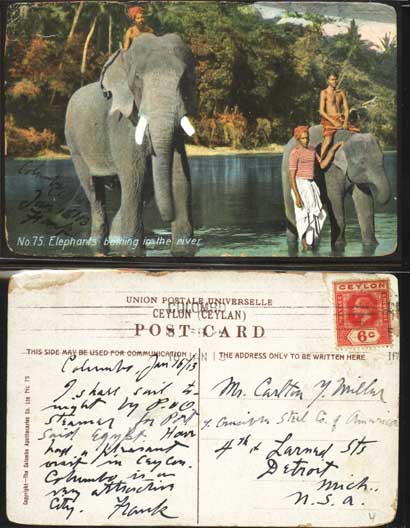 Colombo
Jan 16/13
Frank
No 75. Elephants bathing in the river
COLOMBO
UNION POSTALE UNIVERSELLE
CEYLON (CEYLAN)
POST CARD
THIS SIDE MAY BE USED FOR COMMUNICATION
THE ADDRESS ONLY TO BE WRITTEN HERE.
CEYLON
6c
Colombo, Jan 16/13
I shall sail to-
night by P. & O.
Steamer for Port
Said Egypt. Have
had a pleasant
visit in Ceylon.
Colombo is a
very attractive
City. Frank
Mr. Carlton Y. Miller
Steel Co. of America
4th & Larned Sts
Detroit
Mich.
U.S.A.
Copyright—The Colombo Apothecaries Co. Ltd. No. 75